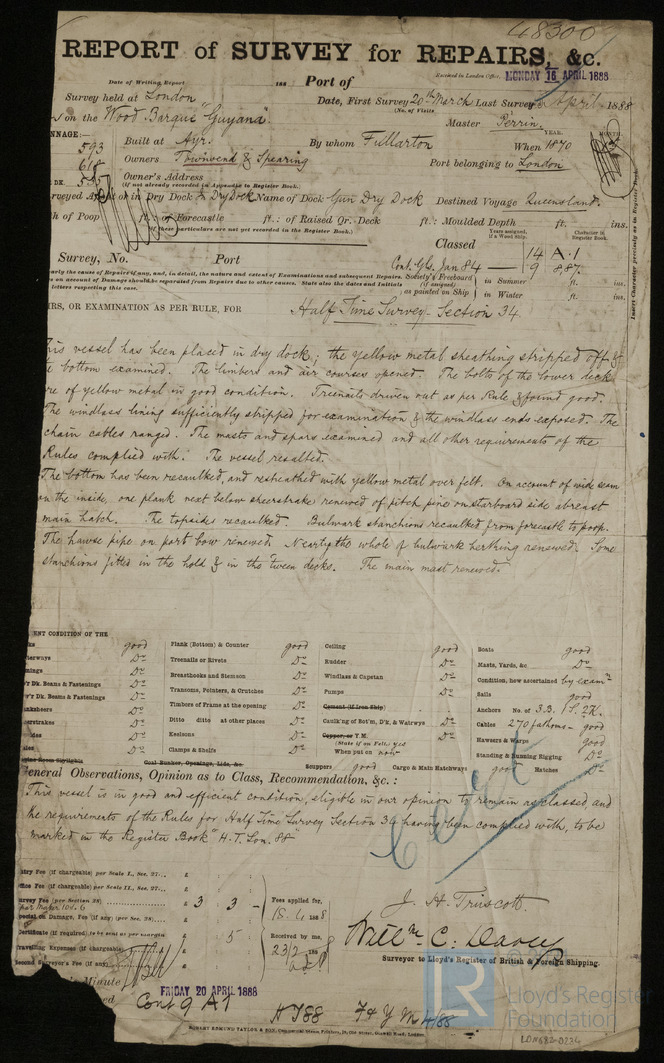 48300
REPORT of SURVEY for REPAIRS, &c.
Date of Writing Report 188 Port of Received in London Office, MONDAY 16 APRIL 1888
Survey held at London Date, First Survey 20th March Last Survey April 1888
(No. of Visits
on the Wood Barque "Guyana" Master Perrin
NNAGE:—
593 Built at Ayr. By whom Fullarton When 1870
YEAR. MONTH.
618 Owners Townend & Spearing Port belonging to London
DK. Owner's Address
(If not already recorded in Appendix to Register Book.)
rveyed Afloat or in Dry Dock Dry Dock Name of Dock Gun Dry Dock Destined Voyage Queensland.
h of Poop ft.: of Forecastle ft.: of Raised Qr. Deck ft.: Moulded Depth ft. ins.
(If these particulars are not yet recorded in the Register Book.)
Survey, No. Port
Classed
Years assigned, if a Wood Ship. Character in Register Book.
14 A.1
Cont. 9 Yrs. Jan 84 — 9 8.87.
early the cause of Repairs if any, and, in detail, the nature and extent of Examinations and subsequent Repairs.
on account of Damage should be separated from Repairs due to other causes. State also the dates and Initials
letters respecting this case.
Society's Freeboard (if assigned) as painted on Ship
in Summer ft. ins.
in Winter ft. ins.
Insert Character precisely as in Register Book.
IRS, OR EXAMINATION AS PER RULE, FOR Half Time Survey - Section 34
This vessel has been placed in dry dock; the yellow metal sheathing stripped off &
the bottom examined. The limbers and air courses opened. The bolts of the lower deck
are of yellow metal in good condition. Treenails driven out as per Rule & found good.
The windlass lining sufficiently stripped for examination & the windlass ends exposed. The
chain cables ranged. The masts and spars examined and all other requirements of the
Rules complied with. The vessel resalted.
The bottom has been recaulked, and resheathed with yellow metal over felt. On account of wide seam
on the inside, one plank next below sheerstrake renewed of pitch pine on starboard side abreast
main hatch. The topsides recaulked. Bulwark stanchions recaulked from forecastle to poop.
The hawse pipe on port bow renewed. Nearly the whole of bulwark berthing renewed. Some
stanchions fitted in the hold & in the tween decks. The main mast renewed.
ENT CONDITION OF THE
ks good Plank (Bottom) & Counter good Ceiling good Boats good
terways Do Treenails or Rivets Do Rudder Do Masts, Yards, &c Do
mings Do Breasthooks and Stemson Do Windlass & Capstan Do Condition, how ascertained by examn
r Dk. Beams & Fastenings Do Transoms, Pointers, & Crutches Do Pumps Do Sails good
r'r Dk. Beams & Fastenings Do Timbers of Frame at the opening Do Cement (if Iron Ship) Anchors No. of 3.B. 1S. 2K.
anksheers Do Ditto ditto at other places Do Caulk'g of Bot'm, D'k, & Watrwys Do Cables 270 fathoms - good
erstrakes Do Keelsons Do Copper, or Y.M. Hawsers & Warps good
des Do Clamps & Shelfs Do (State if on Felt.) yes Standing & Running Rigging Do
ales Do When put on now
Engine Room Skylights Coal Bunker, Openings, Lids, &c. Scuppers good Cargo & Main Hatchways good Hatches Do
General Observations, Opinion as to Class, Recommendation, &c.:
This vessel is in good and efficient condition, eligible in our opinion to remain as classed, and
the requirements of the Rules for Half Time Survey Section 34 having been complied with, to be
marked in the Register Book "H.T. Lon. 88"
Cert
ntry Fee (if chargeable) per Scale I., Sec. 27... £ : :
ffice Fee (if chargeable) per Scale II., Sec. 27... £ : :
urvey Fee (per Section 28) £ 3 : 3 : -
pecial or Damage, Fee (if any) (per Sec. 28) £ : :
ertificate (if required) to be sent as per margin : 5 :
ravelling Expenses (if chargeable) £
Second Surveyor's Fee (if any)
Fees applied for,
18. 4. 1888
Received by me,
23/2 188
J. H. Truscott.
Willm C. Davey
Surveyor to Lloyd's Register of British & Foreign Shipping.
Minute
FRIDAY 20 APRIL 1888
Cont 9 A1
HT88 F & YM 4/88
ROBERT EDMUND TAYLOR & SON, Commercial Steam Printers, 19, Old Street, Goswell Road, London.
LR
© Lloyd's Register
Foundation
LON682-0224